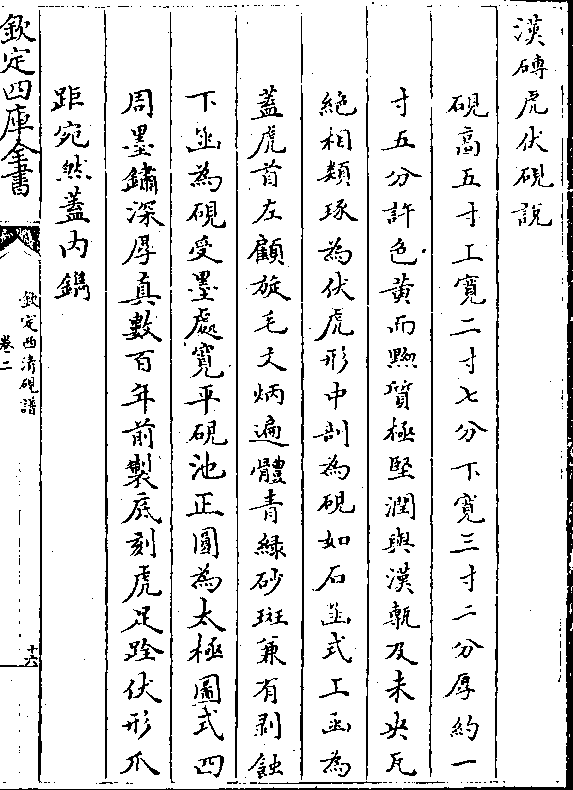 漢磚虎伏硯說
硯高五寸上寬二寸七分下寬三寸二分厚約一
寸五分許色黄而黝質極堅潤與漢甎及未央瓦
絶相類琢為伏虎形中剖為硯如石凾式上凾為
蓋虎首左顧旋毛文炳遍體青緑砂斑兼有剥蝕
下凾為硯受墨處寬平硯池正圓為太極圖式四
周墨鏽深厚真數百年前製底刻虎足跧伏形爪
距宛然蓋内鐫
欽定四庫全書
欽定西清硯譜
卷二
十六